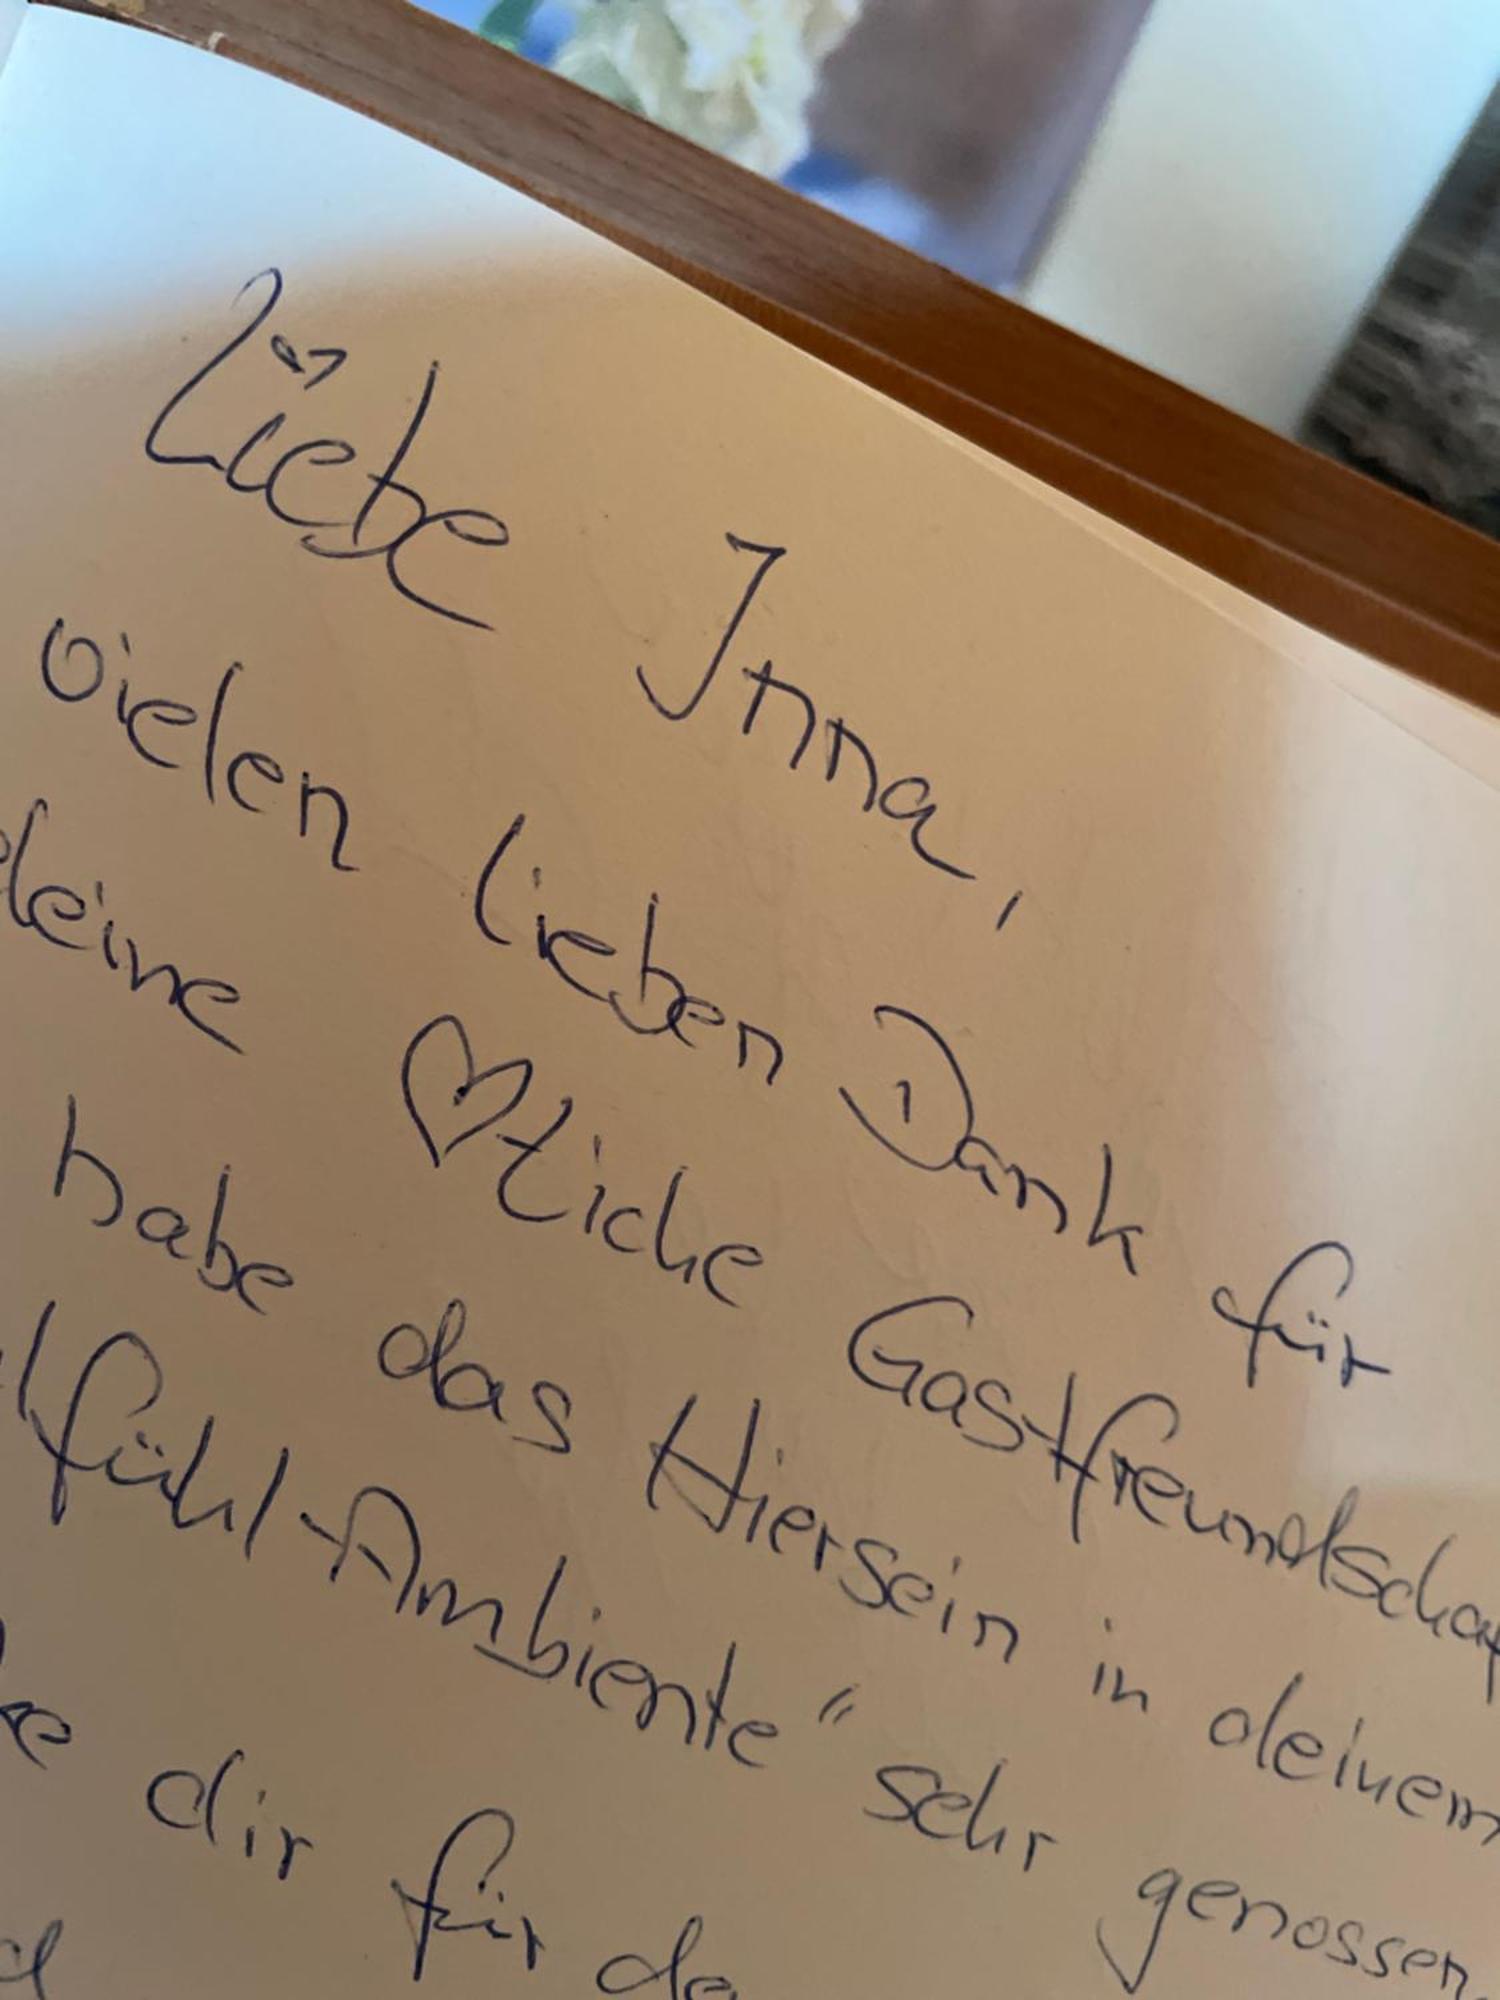 Liebe Inna,
vielen lieben Dank für
deine ♡liche Gastfreundschaf
habe das Hiersein in deinem
lfühl-Ambiente" sehr genossen
dir für